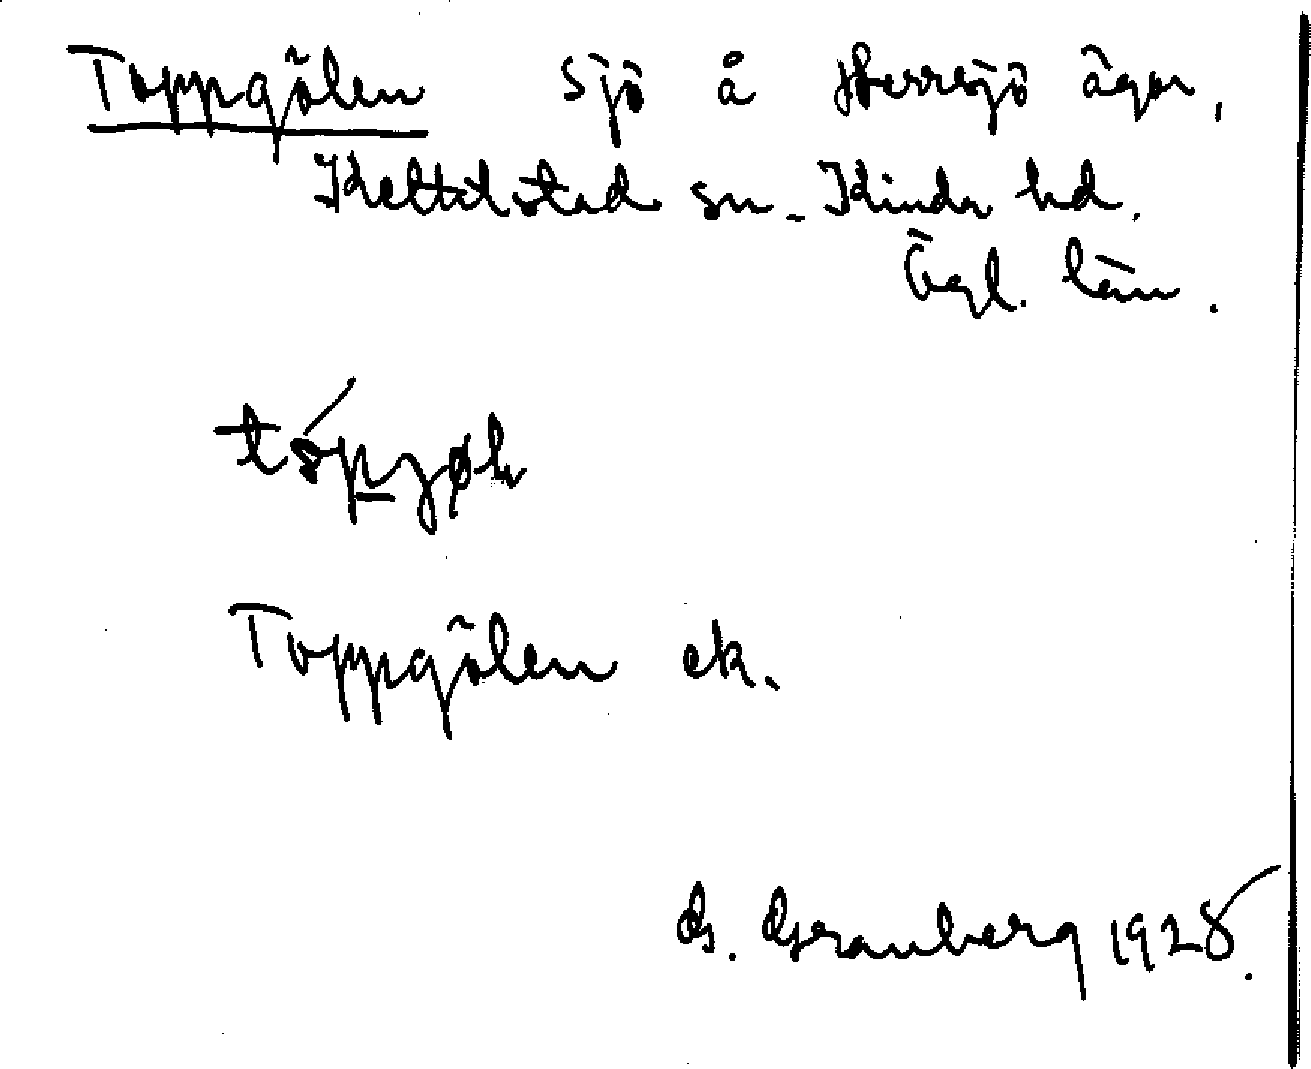 Toppgölen sjö å Herresjö ägor,
Kettilstad sn. Kinda hd.
Ögl. län.
Toppgölen ek.
G. Granberg 1928.